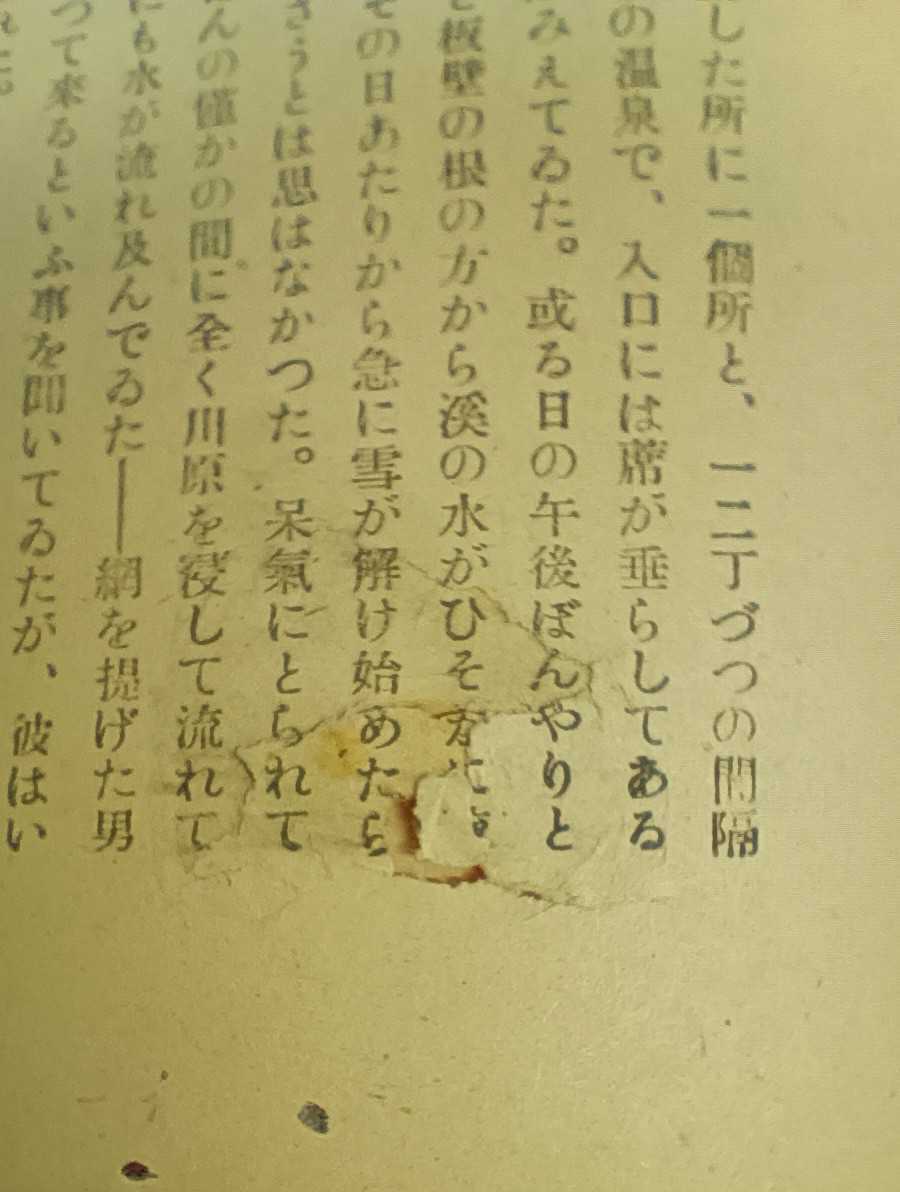 した所に一個所と、一二丁づつの間隔
の温泉で、入口には蓆が垂らしてある
みえてゐた。或る日の午後ぼんやりと
板壁の根の方から溪の水がひそか
その日あたりから急に雪が解け始めたら
さうとは思はなかつた。呆氣にとられて
んの僅かの間に全く川原を浸して流れて
にも水が流れ及んでゐた――網を提げた男
つて来るといふ事を聞いてゐたが、彼はい